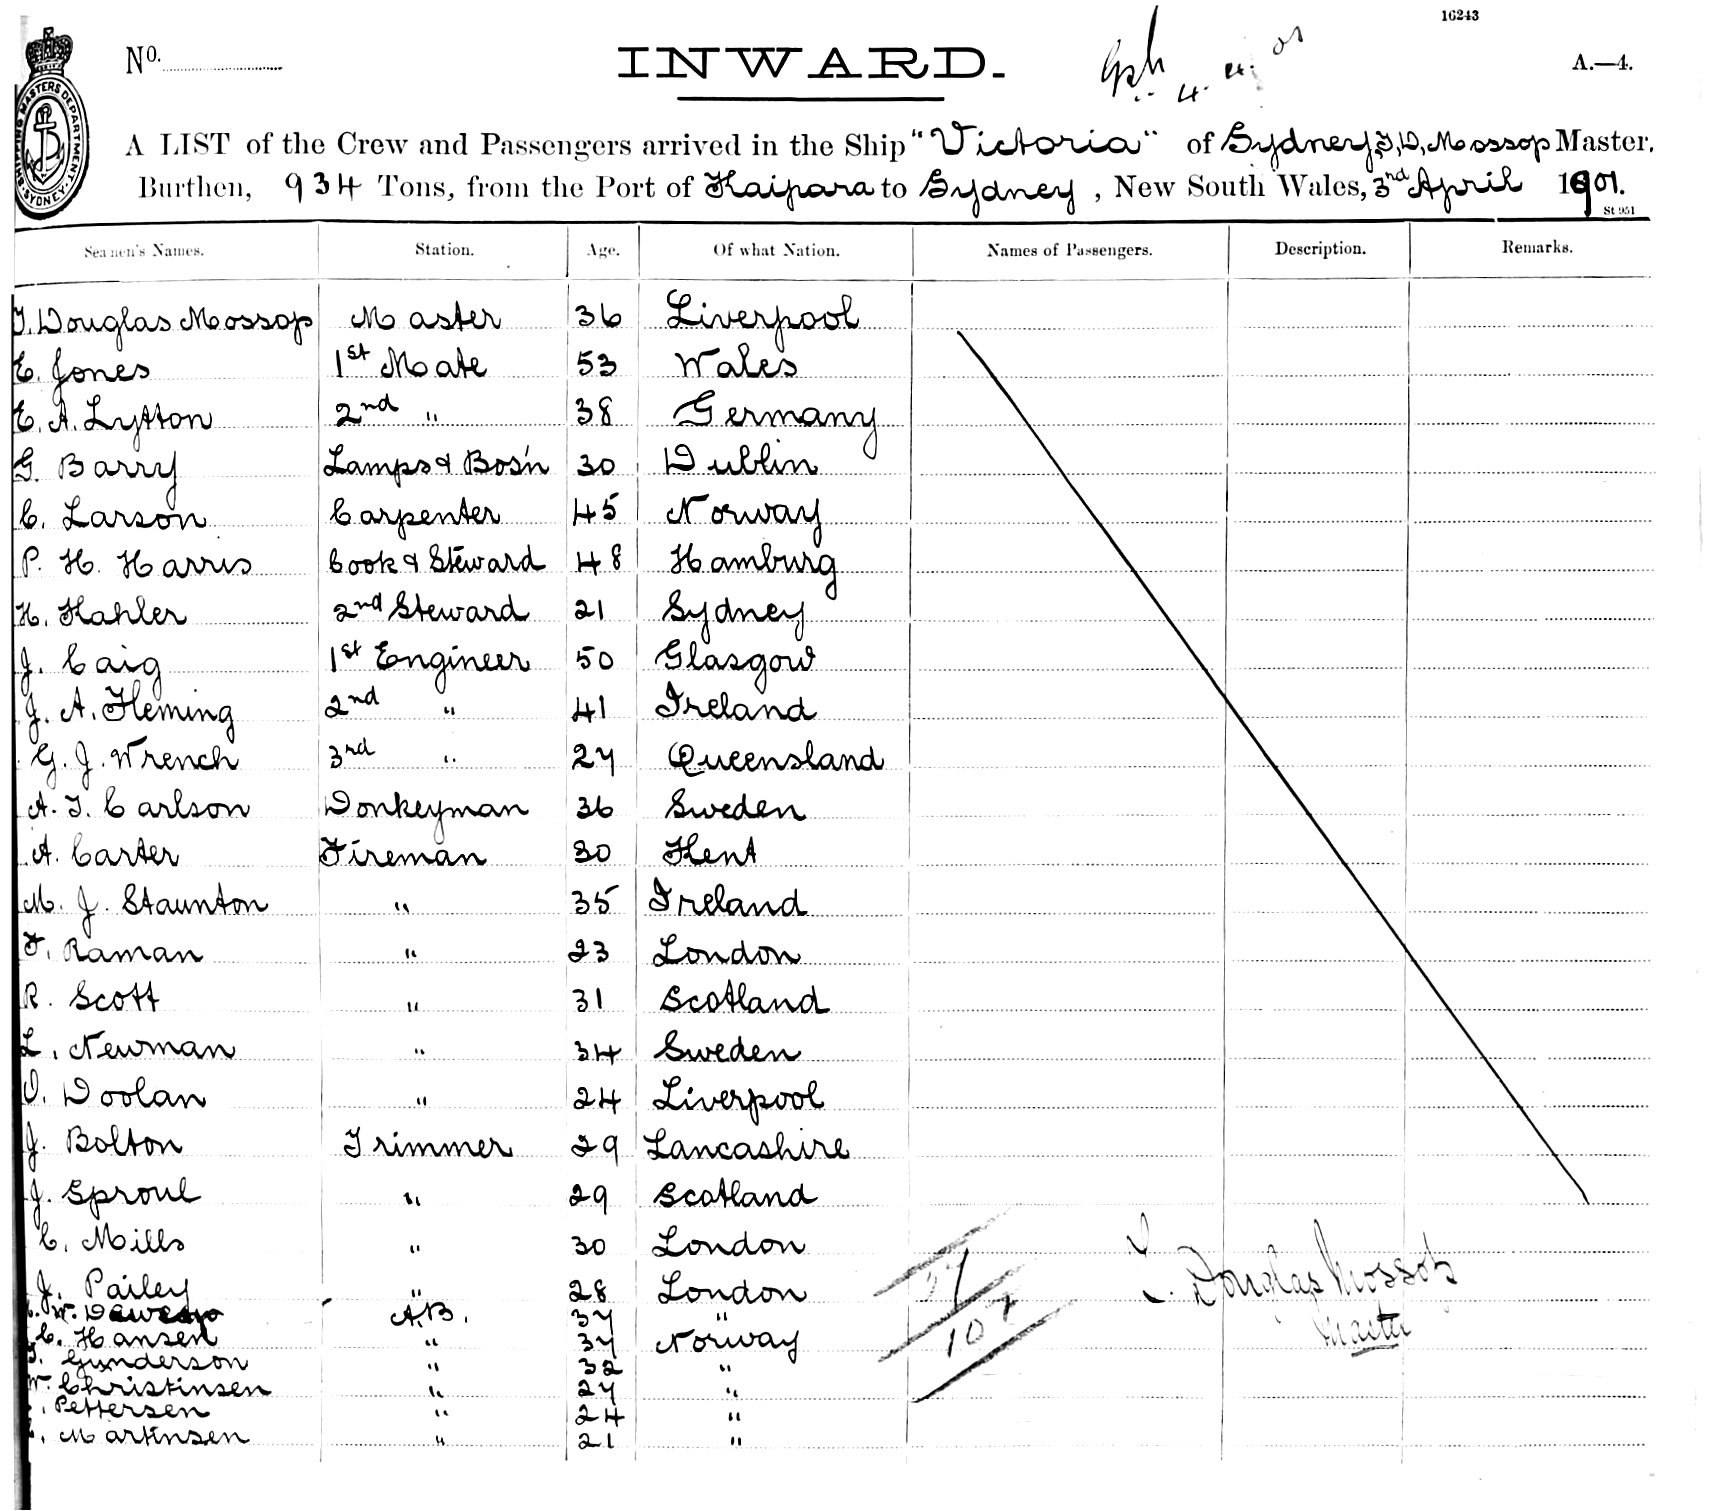 16243
No.
INWARD.
4. 4. 01
A.—4.
SHIPPING MASTERS DEPARTMENT SYDNEY
A LIST of the Crew and Passengers arrived in the Ship "Victoria" of Sydney, T, D, Mossop Master,
Burthen, 934 Tons, from the Port of Kaipara to Sydney, New South Wales, 3rd April 1901.
St 951
Seamen's Names. Station. Age. Of what Nation. Names of Passengers. Description. Remarks.
T. Douglas Mossop Master 36 Liverpool
E. Jones 1st Mate 53 Wales
E. A. Lytton 2nd " 38 Germany
G. Barry Lamps & Bos'n 30 Dublin
C. Larson Carpenter 45 Norway
P. H. Harris Cook & Steward 48 Hamburg
H. Kahler 2nd Steward 21 Sydney
J. Caig 1st Engineer 50 Glasgow
J. A. Fleming 2nd " 41 Ireland
G. J. Wrench 3rd " 27 Queensland
A. T. Carlson Donkeyman 36 Sweden
A. Carter Fireman 30 Kent
M. J. Staunton " 35 Ireland
F. Raman " 23 London
R. Scott " 31 Scotland
L. Newman " 34 Sweden
D. Doolan " 24 Liverpool
J. Bolton Trimmer 29 Lancashire
J. Sproul " 29 Scotland
C. Mills " 30 London
J. Pailey " 28 London
W. A.B. 37 "
C. Hansen " 37 Norway
T. Gunderson " 32 "
W. Christinsen " 27 "
Pettersen " 24 "
Martinsen " 21 "
T. Douglas Mossop
Master